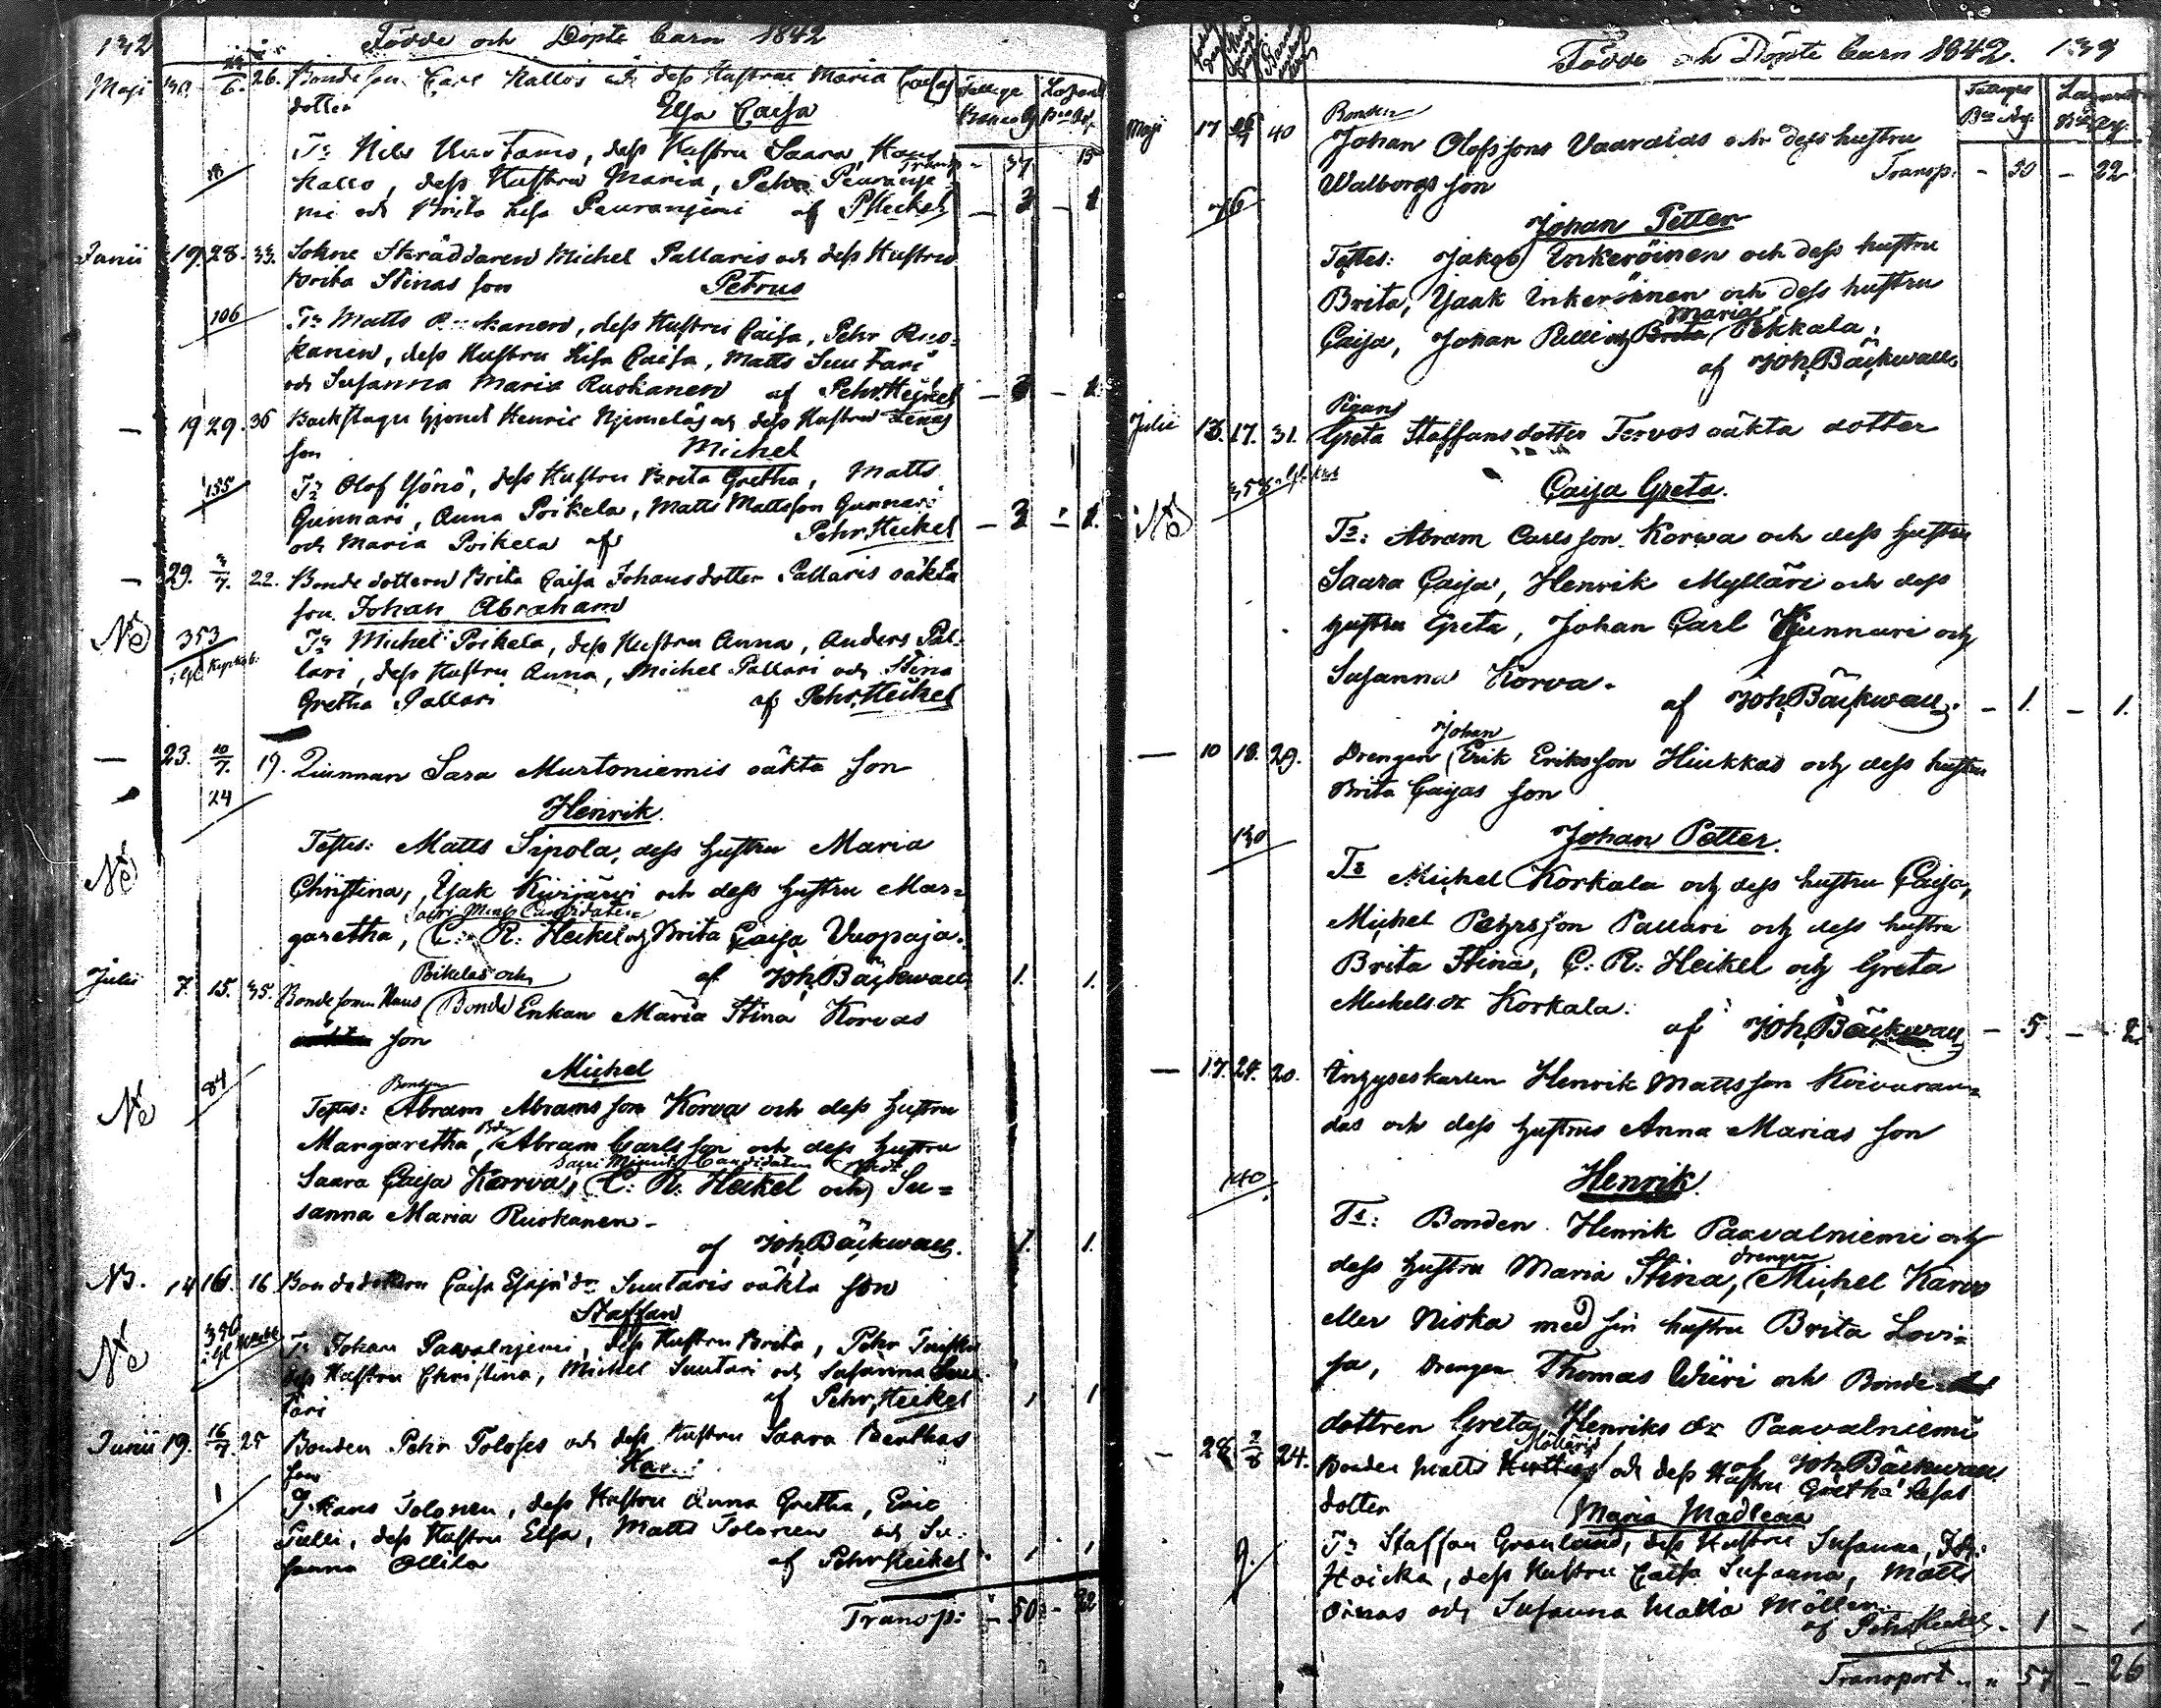 132 Födde och Döpte Barn 1842
Maji 30. 24/6. 26. Bondeson Carl Kallos och dess Hustrus Maria Caisas
dotter Elsa Caisa
Ts Nils Kustano, dess Hustru Saara, Hans
Kallo, dess Hustru Maria, Pehr Peuranje Transp. - 37 15
mi och Brita Lisa Peuranjemi af P Heikel - 3 - 1
Junii 19. 28. 33. Sokne Skräddaren Michel Pallaris och dess Hustrus
Brita Stinas son Petrus
106 Ts Matts Ruokanen, dess Hustru Caisa, Pehr Ruo-
kanen, dess Hustru Lisa Caisa, Matts Suutari
och Susanna Maria Ruokanen af Pehr Heikel - 3 - 1.
- 19 29. 36 Backstugu hjonet Henric Njemeläs och dess Hustrus Lenas
son Michel
155 Ts Olof Yönö, dess Hustru Brita Gretha, Matts
Gunnari, Anna Poikela, Matts Mattsson Gunnari
och Maria Poikela af Pehr Heikel - 3 - 1.
- 29. 3/7. 22. Bonde dottern Brita Caisa Johansdotter Pallaris oäkta
son Johan Abraham
353 Ts Michel Poikela, dess Hustru Anna, Anders Pal-
lari, dess Hustru Anna, Michel Pallari och Stina
Gretha Pallari af Pehr Heikel
- 23. 10/7. 19. Quinnan Sara Murtoniemis oäkta son
24
Henrik.
Testes: Matts Sipola, dess hustru Maria
Christina, Isak Kivijärvi och dess hustru Mar-
Sacri Minis Candidaten
garetha, C: R: Heikel och Brita Caisa Vuopaja.
Poikelas och af Joh. Bäckwall 1. 1.
Julii 7. 15. 35. Bondesonen Hans Bonde Enkan Maria Stina Korvas
son
84 Michel
Bonden
Testes: Abram Abramsson Korva och dess hustru
Margaretha, Abram Carlsson och dess hustru
Sacri Minist. Candidaten
Saara Caisa Korva, C: R: Heikel och Su-
sanna Maria Ruokanen.
af Joh. Bäckwall. 1. 1.
NB. 14 16. 16 Bondedottern Caisa Esajæ dr Suutaris oäkta son
Staffan
Ts Johan Paavalnjemi, dess Hustru Brita, Pehr
dess Hustru Christina, Michel Suutari och Susanna Suu-
tari af Pehr Heikel 1 1
Junii 19. 16/7. 25 Bonden Pehr Toloses och dess Hustrus Saara Berthas
son
1 Ts Hans Tolonen, dess Hustru Anna Gretha, Eric
Pelli, dess Hustru Elsa, Matts Tolonen och Su-
sanna Ollila af Pehr Heikel 1 1
Transp: - 50 - 22
Födde och Döpte Barn 1842. 139
Bonden
Maji 17 40 Johan Olofssons Vaaralas och dess hustru
Walborgs son Transp: - 50 - 22
76
Johan Petter
Testes: Jakob Inkeröinen och dess hustru
Brita, Isaak Inkeröinen och dess hustru
Maria
Caisa, Johan Pelli och Brita Pekkala.
af Joh. Bäckwall
Pigans
Julii 13. 17. 31. Greta Staffansdotter Tervos oäkta dotter
358
Caisa Greta.
Ts: Abram Carlsson Korva och dess hustru
Saara Caisa, Henrik Mylläri och dess
hustru Greta, Johan Carl Gunnari och
Susanna Korva.
af Joh. Bäckwall. - 1. - 1.
Johan
- 10 18. 29. Drengen Erik Eriksson Hiukkas och dess hustru
Brita Caisas son
130 Johan Petter.
Ts Michel Korkala och dess hustru Caisa,
Michel Pehrsson Pallari och dess hustru
Brita Stina, C: R: Heikel och Greta
Michels dr Korkala.
af Joh. Bäckwall - 5. - 2.
- 17. 24. 20. Inhyseskarlen Henrik Mattsson Koivuran-
das och dess hustrus Anna Marias son
140 Henrik
Ts: Bonden Henrik Paavalniemi och
drengen
dess hustru Maria Stina, Michel Karvo
eller Niska med sin hustru Brita Lovi-
sa, Drengen Thomas Wiiri och Bonde
dottren Greta Henriks dr Paavalniemi
af Joh. Bäckwall
- 28 2/8 24. Bonden Matts och dess Hustru Gretha Lisas
dotter Maria Madlena
9. Ts Staffan Granlund, dess Hustru Susanna, Joh.
Hoicka, dess Hustru Caisa Susanna, Matts
Oinas och Susanna Maria Möllari
af Pehr Heikel - 1 - 1
Transport - 57 - 26